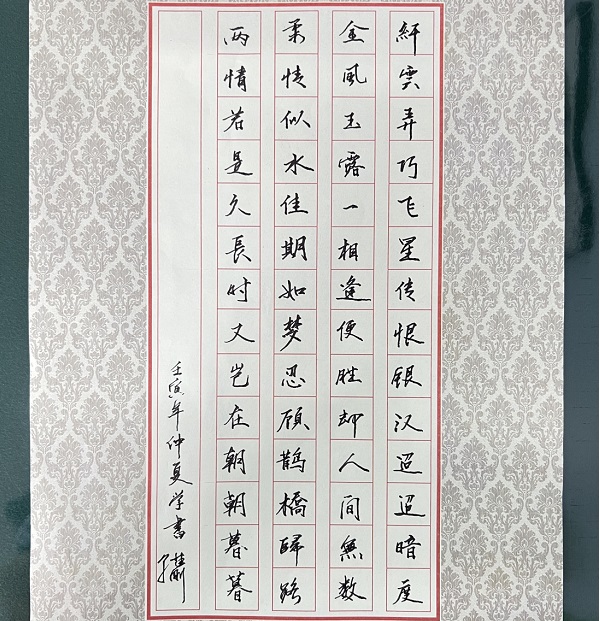 纤雲弄巧飞星传恨银汉迢迢暗度
金風玉露一相逢便胜却人间無数
柔情似水佳期如梦忍顾鹊橋歸路
两情若是久長时又岂在朝朝暮暮
壬寅年仲夏学書